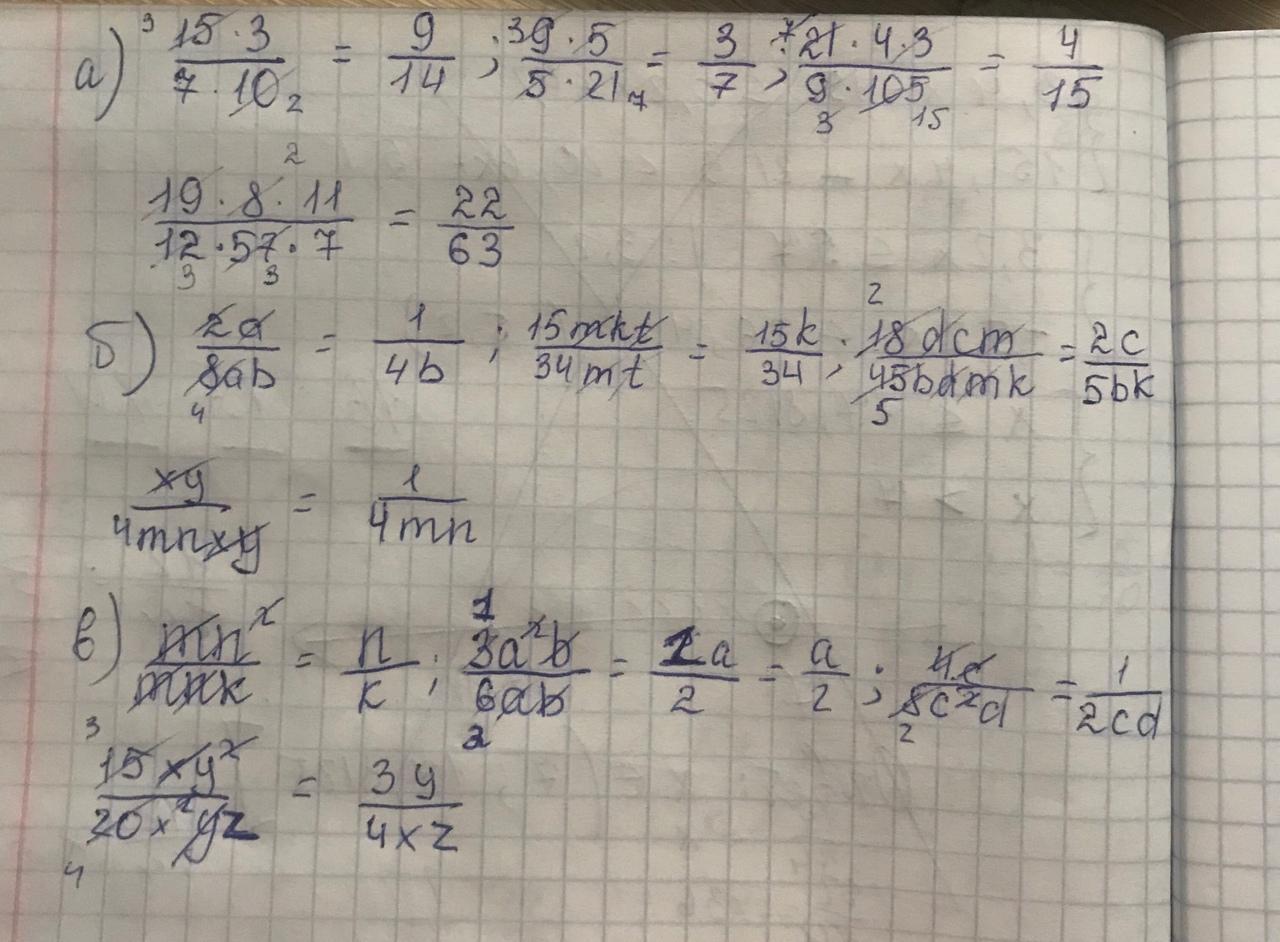 а) 15·3/7·10 = 9/14 ; 9·5/5·21 = 3/7 ; 21·4·3/9·105 = 4/15
19·8·11/12·57·7 = 22/63
б) 2a/8ab = 1/4b ; 15mkt/34mt = 15k/34 ; 18dcm/45bdmk = 2c/5bk
xy/4mnxy = 1/4mn
в) mn²/mnk = n/k ; 3a²b/6ab = 1a/2 = a/2 ; 4c/8c²d = 1/2cd
15xy²/20x²yz = 3y/4xz